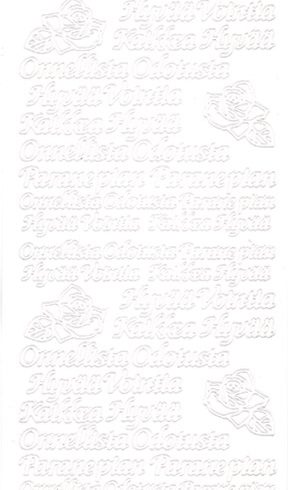 Hyvää Vointia
Kaikkea Hyvää
Onnellista Odotusta
Hyvää Vointia
Kaikkea Hyvää
Onnellista Odotusta
Parane pian Parane pian
Onnellista Odotusta Parane pian
Hyvää Vointia Kaikkea Hyvää
Onnellista Odotusta Parane pian
Hyvää Vointia Kaikkea Hyvää
Hyvää Vointia
Kaikkea Hyvää
Onnellista Odotusta
Hyvää Vointia
Kaikkea Hyvää
Onnellista Odotusta
Parane pian Parane pian